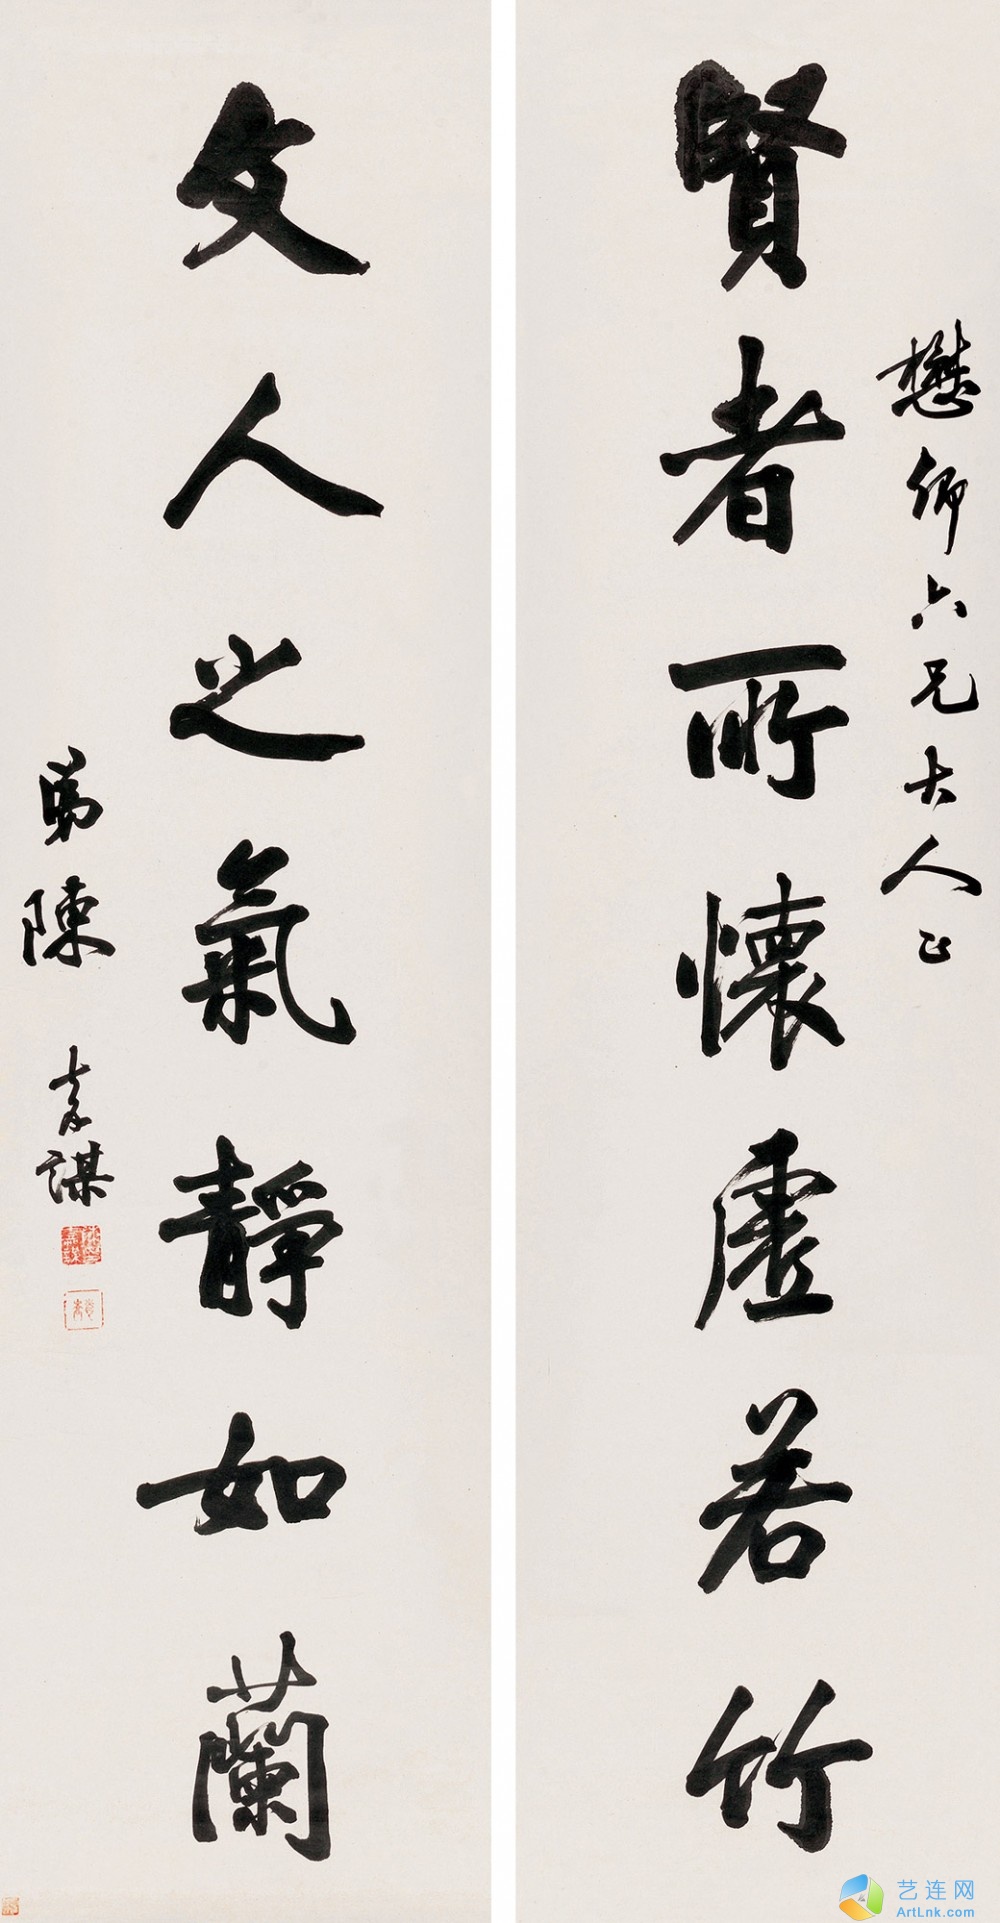 懋卿六兄大人正
賢者所懷虛若竹
文人之氣靜如蘭
弟陳孝謀
艺连网
ArtLnk.com